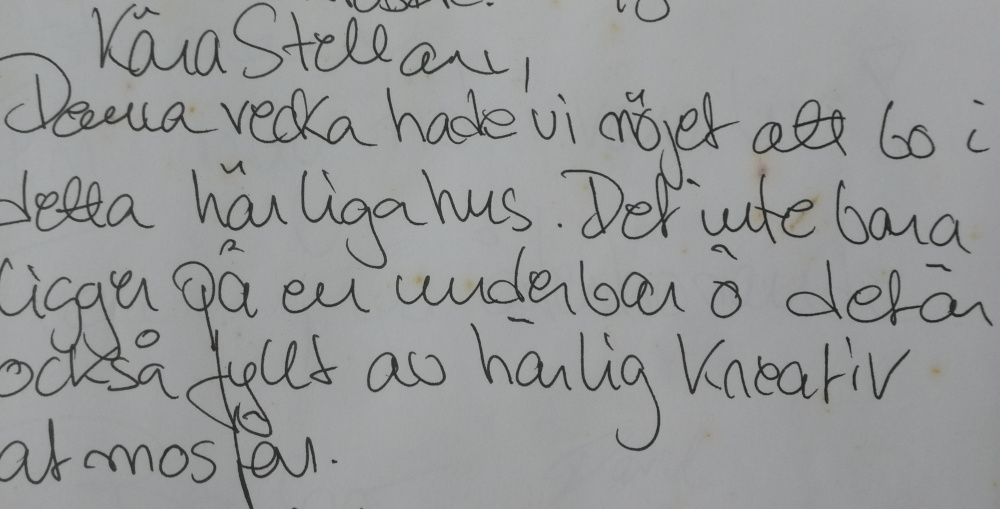 Kära Stellan,
Denna vecka hade vi nöjet att bo i
detta härliga hus. Det inte bara
ligger på en underbar ö det är
också fyllt av härlig kreativ
atmosfär.